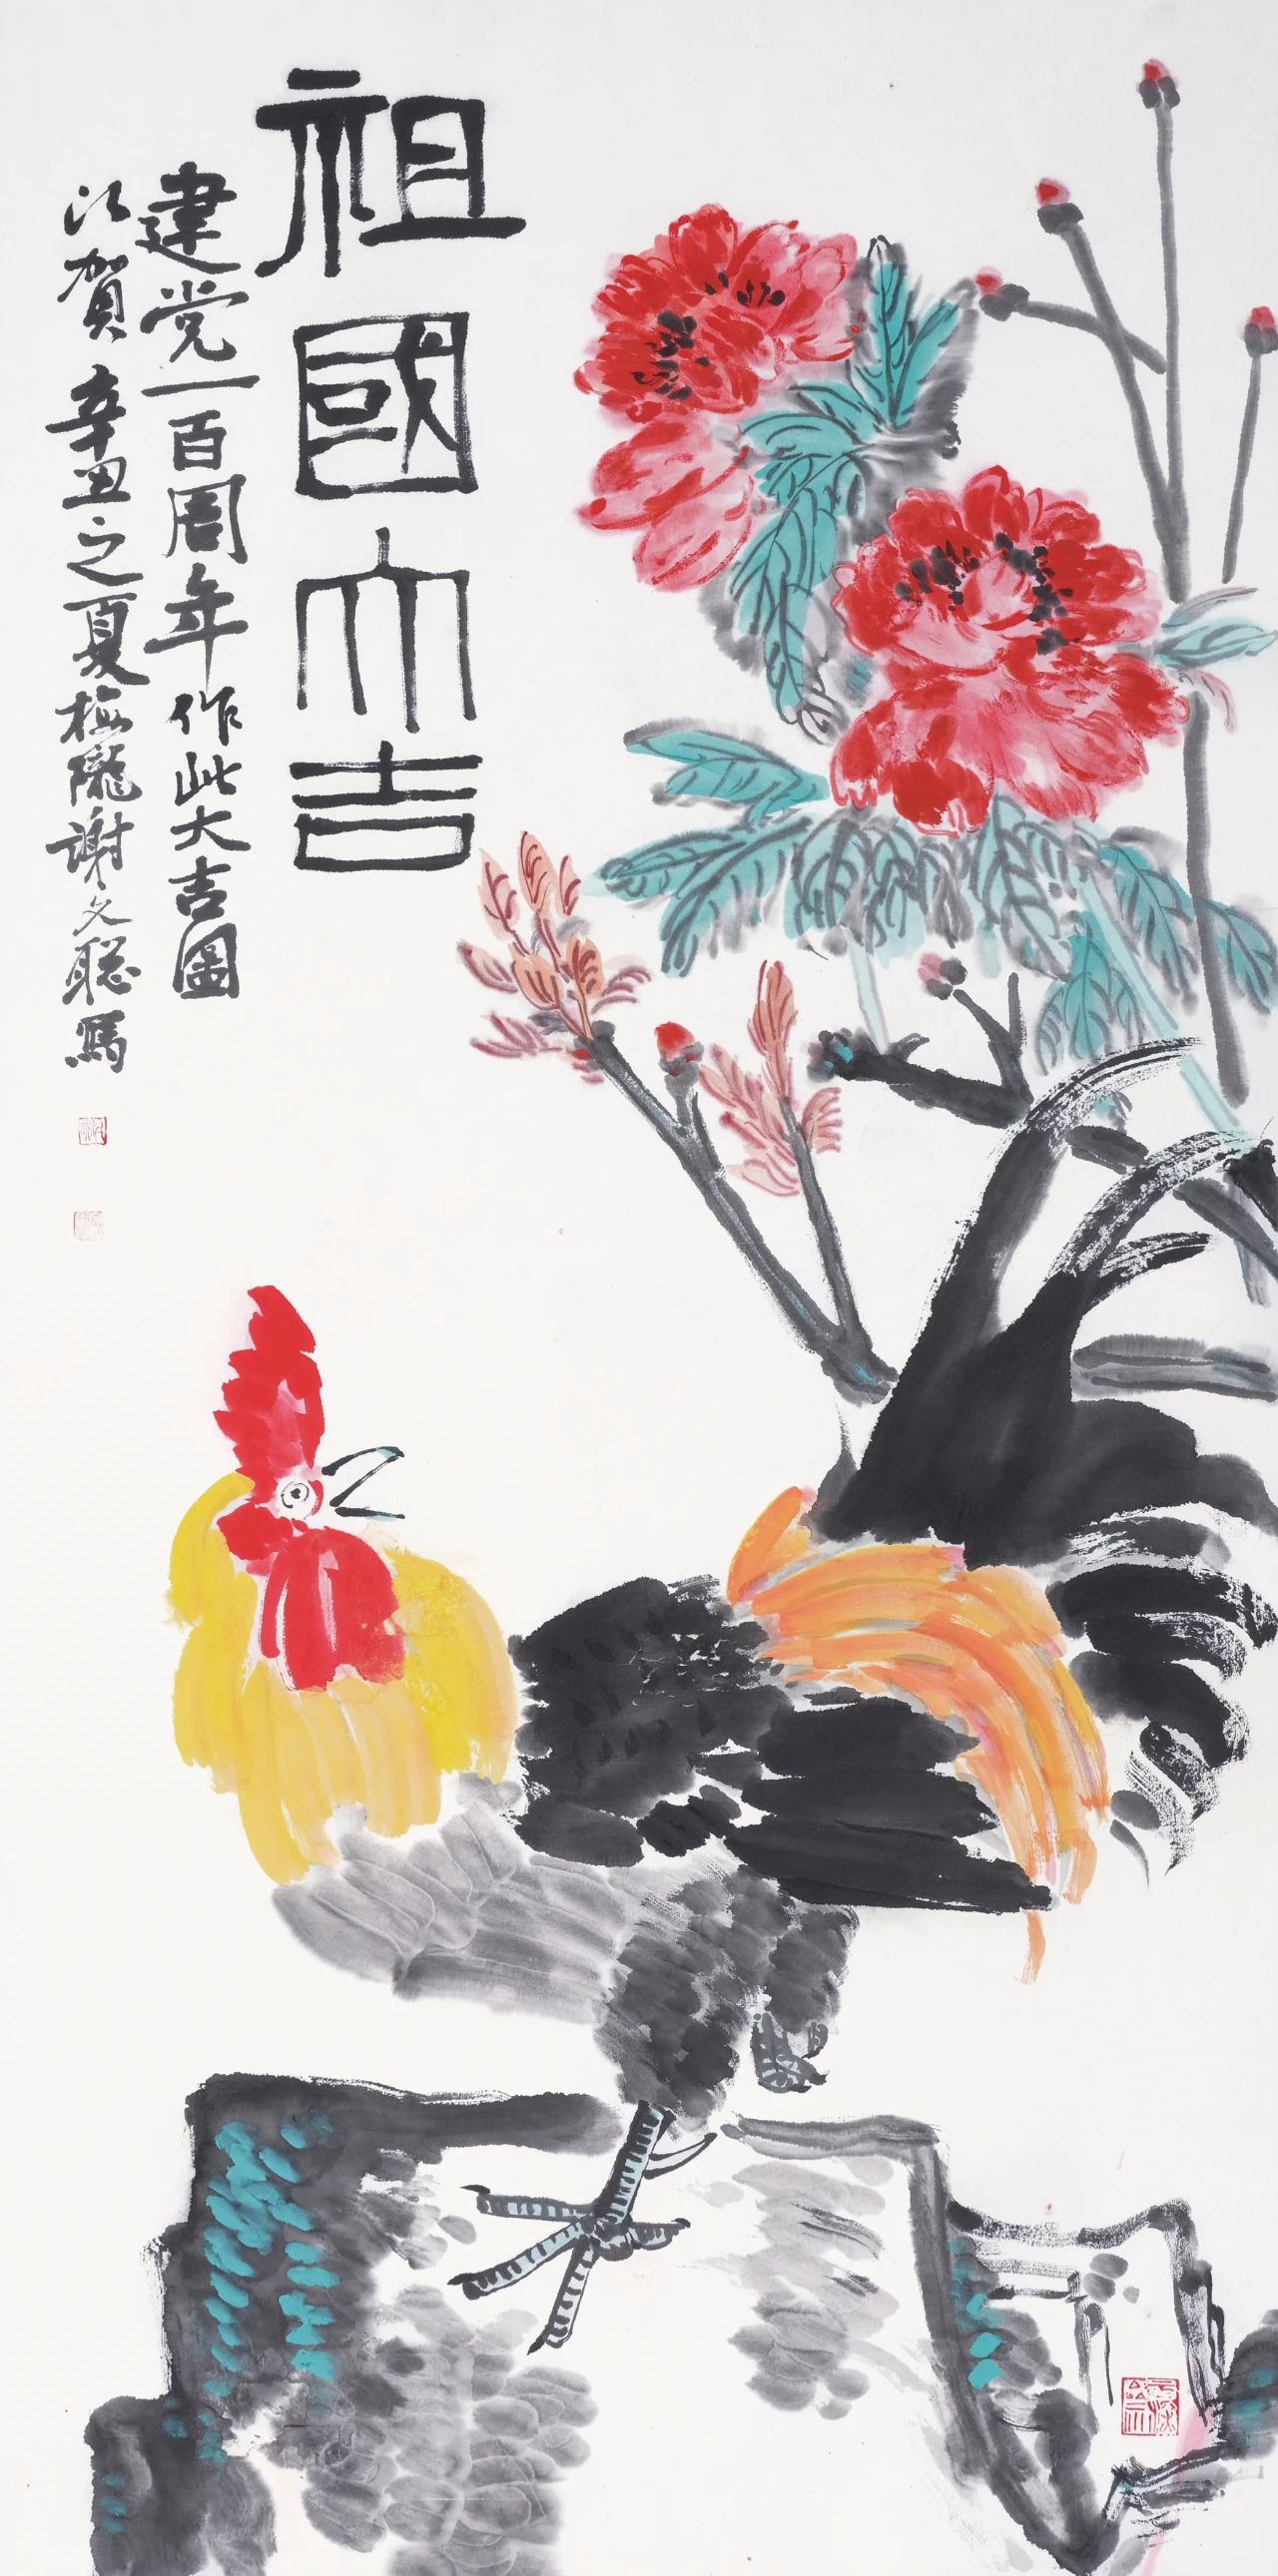 祖國大吉
建党一百周年作此大吉圖
以賀辛丑之夏梅隴谢文聪寫